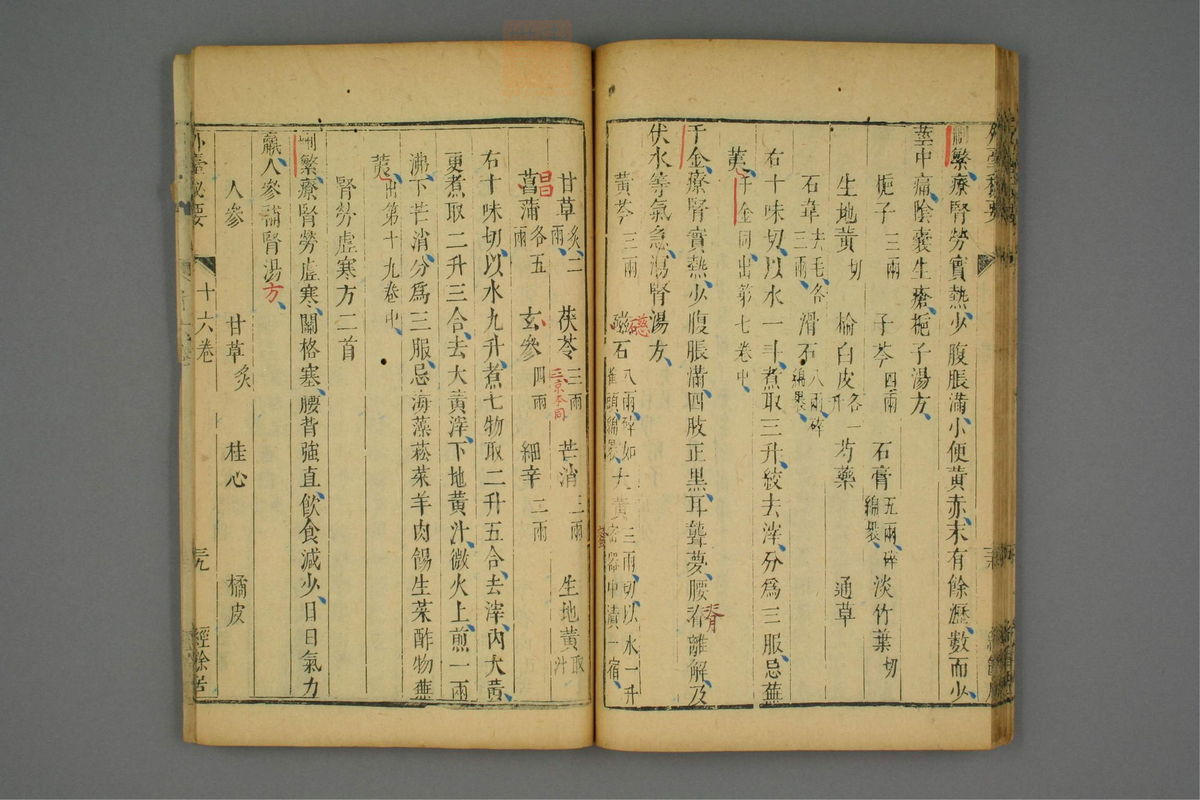 刪繁療腎勞實熱少腹脹滿小便黃赤末有餘瀝數而少
莖中痛陰囊生瘡梔子湯方
梔子三兩 子芩四兩 石膏五兩碎綿裹 淡竹葉切
生地黃切 榆白皮各一升 芍藥 通草
石韋去毛各三兩 滑石八兩碎綿裹
右十味切以水一斗煮取三升絞去滓分爲三服忌蕪
荑千金同出第七卷中
千金療腎實熱少腹脹滿四肢正黑耳聾夢腰脊離解及
脊
伏水等氣急瀉腎湯方
黃芩三兩 磁石八兩碎如雀頭綿裹 大黃三兩切以水一升密器中漬一宿
甘草炙二兩 茯苓三兩 芒消三兩 生地黃取汁
菖蒲各五兩 玄參四兩 細辛二兩
昌
右十味切以水九升煮七物取二升五合去滓內大黃
更煮取二升三合去大黃滓下地黃汁微火上煎一兩
沸下芒消分爲三服忌海藻菘菜羊肉餳生菜酢物蕪
荑出第十九卷中
腎勞虛寒方二首
刪繁療腎勞虛寒關格塞腰背強直飲食減少日日氣力
羸人參補腎湯方
人參 甘草炙 桂心 橘皮
外臺秘要 十六卷 經餘居